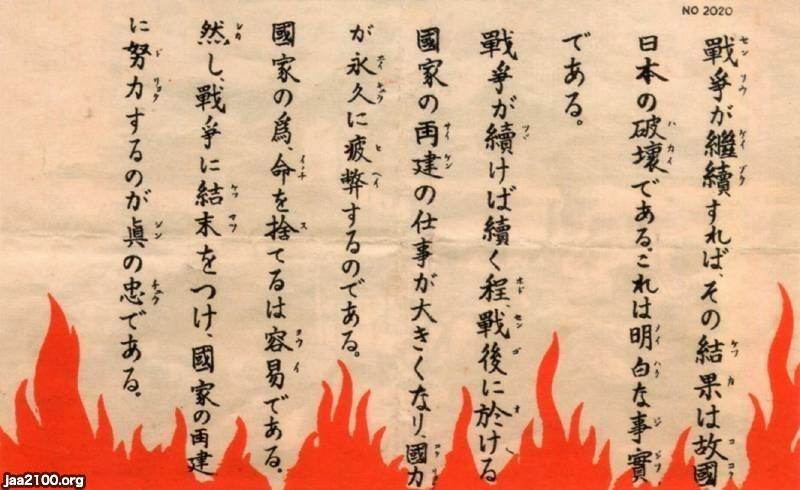 NO 2020
戰爭が繼續すれば、その結果は故國
日本の破壞である。これは明白な事實
である。
戰爭が續けば續く程、戰後に於ける
國家の再建の仕事が大きくなり、國力
が永久に疲弊するのである。
國家の爲、命を捨てるは容易である。
然し、戰爭に結末をつけ、國家の再建
に努力するのが眞の忠である。
jaa2100.org